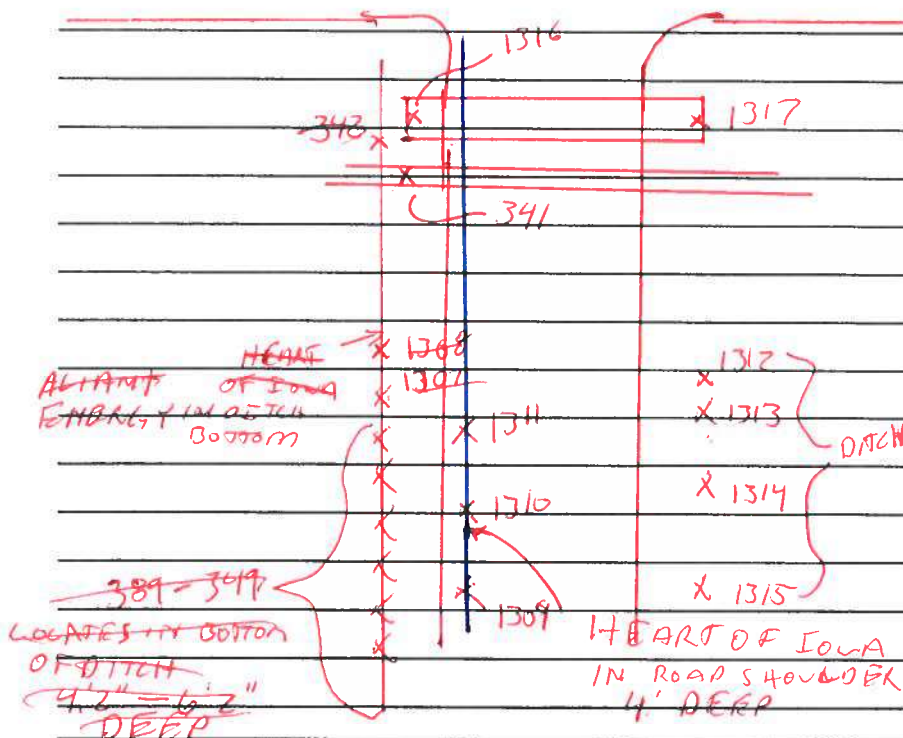 1316
1317
342
341
HEART
1308
1312
ALIANT OF IOWA
1307
ENERGY IN DITCH
BOTTOM
1313
1311
DITCH
1314
1310
389 - 349
1315
1309
LOCATES IN BOTTOM
OF DITCH
4'2" - 6'2"
DEEP
HEART OF IOWA
IN ROAD SHOULDER
4' DEEP